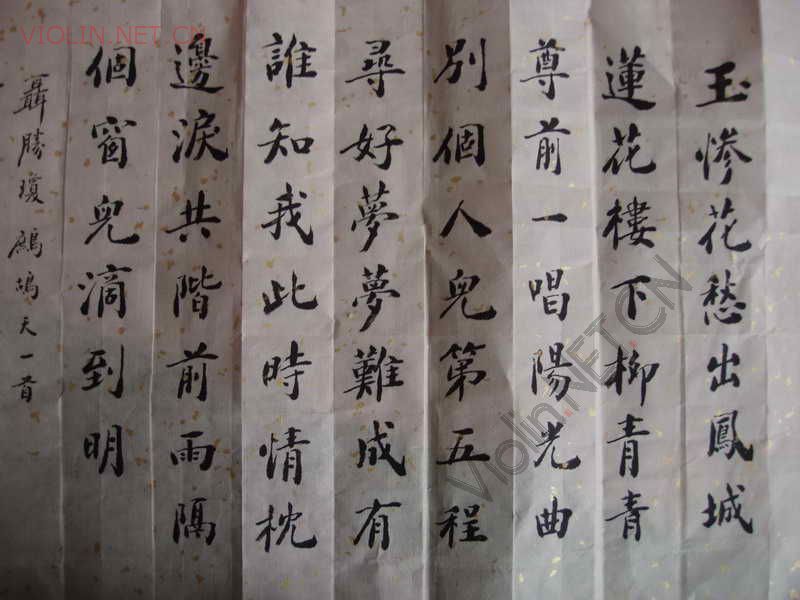 玉惨花愁出鳳城
蓮花樓下柳青青
尊前一唱陽光曲
別個人兒第五程
尋好夢夢難成有
誰知我此時情枕
邊淚共階前雨隔
個窗兒滴到明
聶勝瓊鷓鴣天一首
VIOLIN.NET.CN
Violin.NET.CN